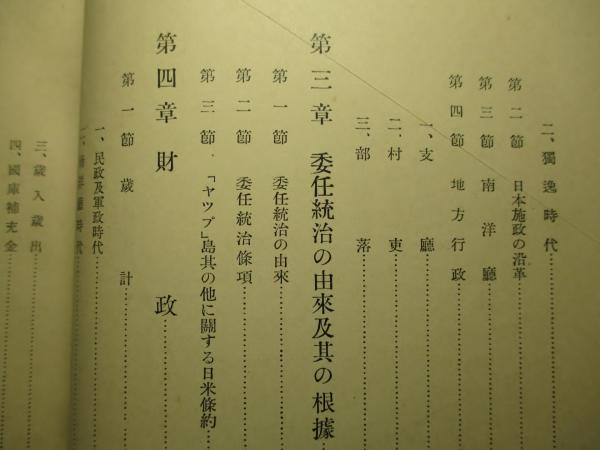 二、獨逸時代
第二節 日本施政の沿革
第三節 南洋廳
第四節 地方行政
一、支廳
二、村吏
三、部落
第三章 委任統治の由來及其の根據
第一節 委任統治の由來
第二節 委任統治條項
第三節 「ヤツプ」島其の他に關する日米條約
第四章 財政
第一節 歲計
一、民政及軍政時代
二、南洋廳時代
三、歲入歲出
四、國庫補充金